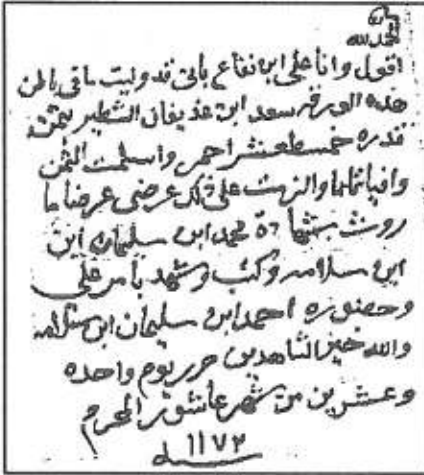 الحمد لله
اقول وانا علي ابن نفاع باني قد وليت ما في باطن
هذه الورقه سعد ابن عذيفان الشطير بثمن
قدره خمسطعشر احمر واسلمت الثمن
وافيا تماما والزمت على ذلك عرضي عرضا ما
روث بشهادة محمد ابن سليمان ابن
ابن سلامه وكتب وشهد بامر علي
وحضوره احمد ابن سليمان ابن سلامه
والله خير الشاهدين حرر يوم واحده
وعشرين من شهر عاشور المحرم
سنه ١١٧٢